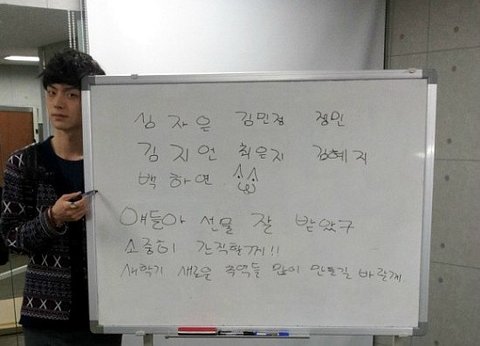 심자은 김민정 정민
김지언 최은지 김혜지
백하연
얘들아 선물 잘 받았구
소중히 간직할께!!
새학기 새로운 추억들 많이 만들길 바랄께